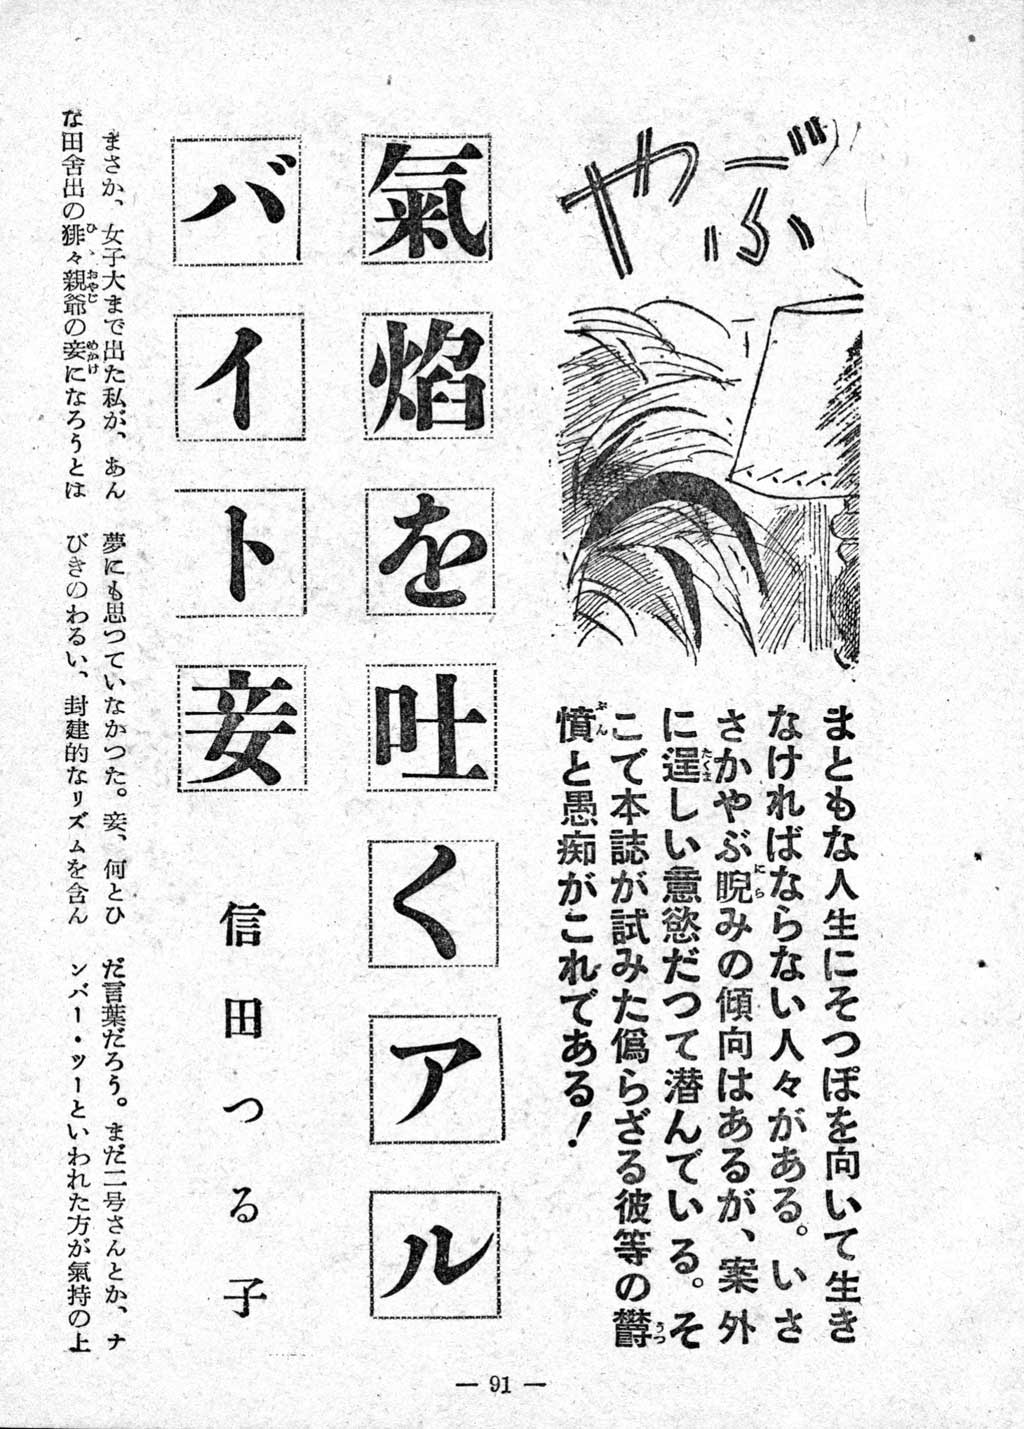 やぶ
まともな人生にそつぽを向いて生き
なければならない人々がある。いさ
さかやぶ睨みの傾向はあるが、案外
に逞しい意慾だつて潜んでいる。そ
こで本誌が試みた僞らざる彼等の欝
憤と愚痴がこれである！
氣焰を吐くアル
バイト妾
信田つる子
まさか、女子大まで出た私が、あん
な田舍出の狒々親爺の妾になろうとは
夢にも思つていなかつた。妾、何とひ
びきのわるい、封建的なリズムを含ん
だ言葉だろう。まだ二号さんとか、ナ
ンバー・ツーといわれた方が氣持の上
— 91 —